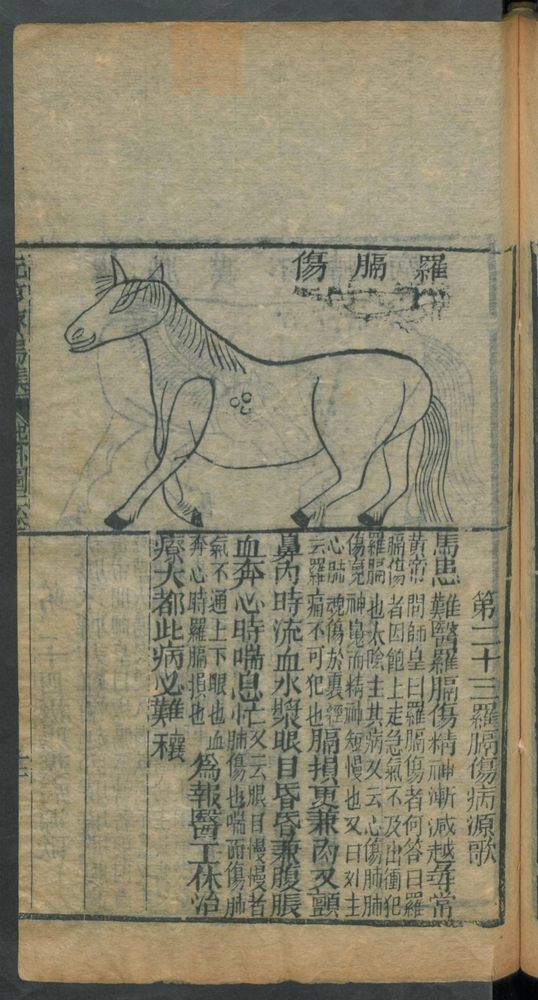 羅膈傷
第二十三羅膈傷病源歌
馬患難醫羅膈傷精神漸減越尋常
黃帝問師皇曰羅膈傷者何答曰羅
膈傷者因飽上走急氣不及出衝犯
羅膈也太陰主其病又云心傷肺肺
傷魂神魂而精神短慢也又曰列主
心肺魂傷於裏經
云羅痛不可犯也膈損更兼肉又顫
鼻內時流血水漿眼目昏昏兼腹脹
血奔心時喘息忙又云眼目慢慢者
肺傷也喘而傷肺
氣不通上下眼也血
奔心時羅膈損也為報醫工休治
療大都此病必難穰